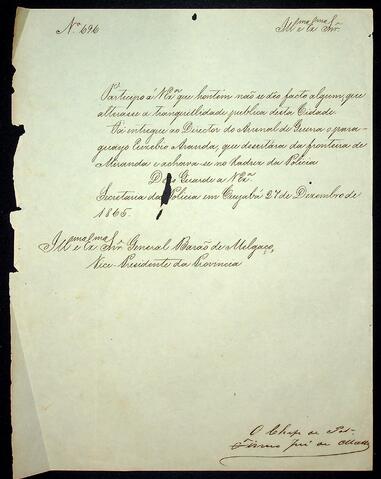 Nº 696
Illmo e Exmo Snr.
Participo á V Exª que hontem não se dio facto algum, que
alterasse a tranquillidade publica desta Cidade.
Foi entregue ao Director do Arsenal de Guerra o para-
guayo Euzebio Aranda, que desertára da fronteira de
Miranda e achava-se no Xadrez da Policia
Deos Guarde a V Exª
Secretaria da Policia em Cuyabá 27 de Dezembro de
1865.
Illmo e Exmo Snr General Barão de Melgaço,
Vice-Presidente da Provincia
O Chefe de Pol-
Firmo José de Mattos